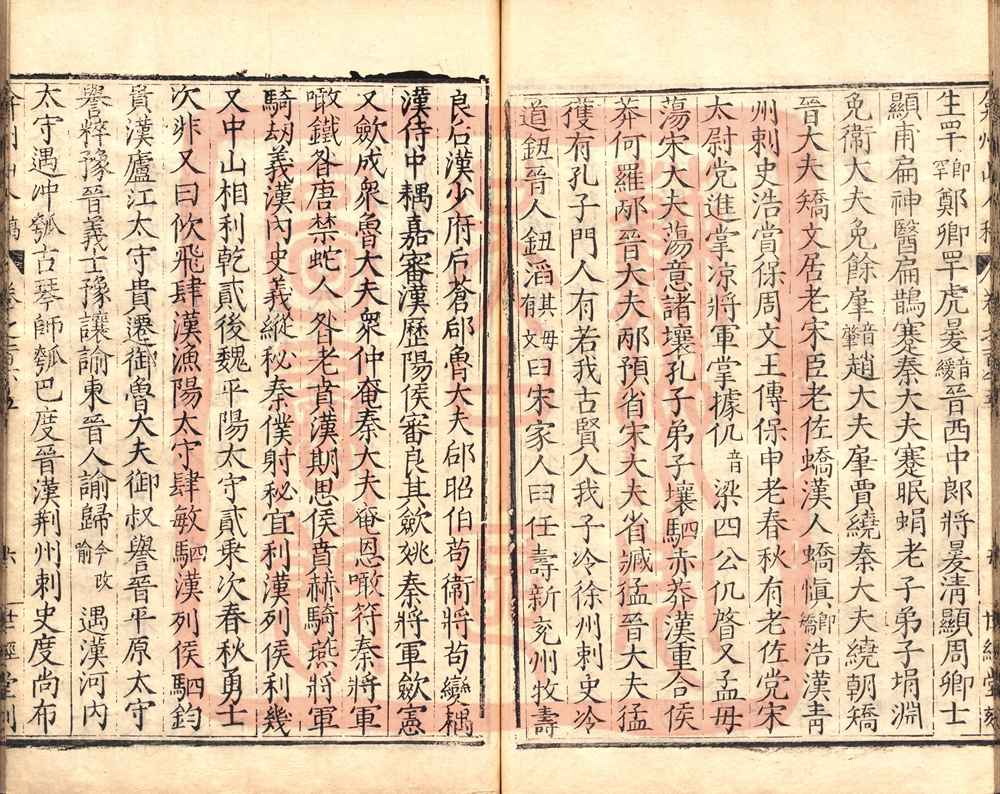 生罕卽罕鄭卿罕虎㬊音緩晉西中郎將㬊淸顯周卿士
顯甫扁神醫扁鵲蹇秦大夫蹇眠蜎老子弟子蜎淵
免衞大夫免餘肈音肇趙大夫肈賈繞秦大夫繞朝矯
晉大夫矯文居老宋臣老佐蟜漢人蟜愼卽矯浩漢靑
州刺史浩賞保周文王傳保申老春秋有老佐党宋
太尉党進掌凉將軍掌據仉音梁四公仉督又孟母
蕩宋大夫蕩意諸壤孔子弟子壤駟赤莽漢重合侯
莽何羅邴晉大夫邴預省宋大夫省臧猛晉大夫猛
獲有孔子門人有若我古賢人我子冷徐州刺史冷
道鈕晉人鈕滔有其毋文曰宋家人曰任壽新兖州牧壽
良后漢少府后蒼郈魯大夫郈昭伯茍衞將茍變耦
漢侍中耦嘉審漢歷陽侯審良其歛姚秦將軍歛憲
又歛成衆魯大夫衆仲奄秦大夫奄恩噉符秦將軍
噉鐵咎唐禁蛇人咎老賁漢期思侯賁赫騎燕將軍
騎劫義漢內史義縱秘秦僕射秘宜利漢列侯利幾
又中山相利乾貳後魏平陽太守貳乘次春秋勇士
次非又曰佽飛肆漢漁陽太守肆敏駟四漢列侯駟鈞
貴漢廬江太守貴遷御魯大夫御叔譽晉平原太守
譽粹豫晉義士豫讓諭東晉人諭歸今改喻遇漢河內
太守遇冲瓠古琴師瓠巴度晉漢荆州刺史度尚布